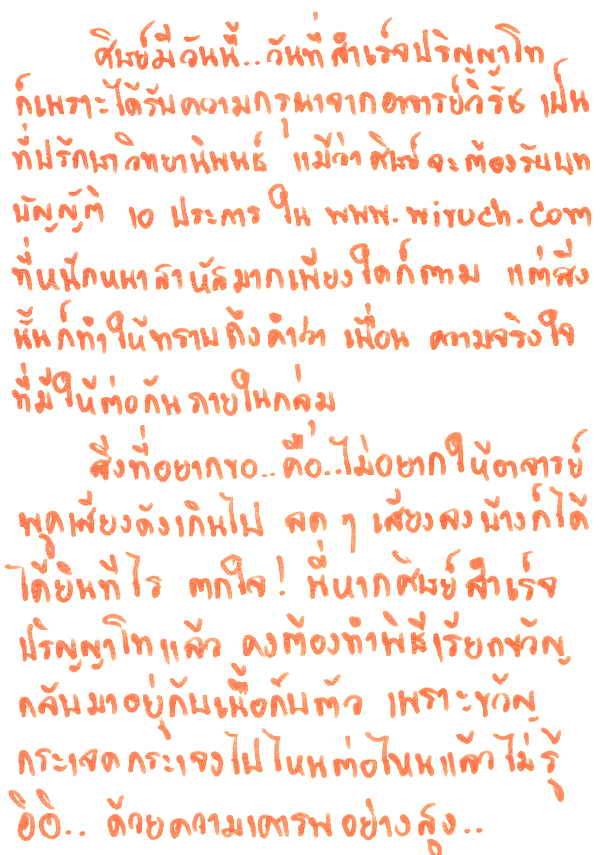 ศิษย์มีวันนี้..วันที่สำเร็จปริญญาโท
ก็เพราะได้รับความกรุณาจากอาจารย์วิรัช เป็น
ที่ปรึกษาวิทยานิพนธ์ แม้ว่าศิษย์จะต้องรับบท
บัญญัติ 10 ประการ ใน www.wiruch.com
ที่หนักหนาสาหัสมากเพียงใดก็ตาม แต่สิ่ง
นั้นก็ทำให้ทราบถึงคำว่า เพื่อน ความจริงใจ
ที่มีให้ต่อกันภายในกลุ่ม
สิ่งที่อยากขอ..คือ..ไม่อยากให้อาจารย์
พูดเสียงดังเกินไป ลด ๆ เสียงลงบ้างก็ได้
ได้ยินทีไร ตกใจ! นี่หากศิษย์สำเร็จ
ปริญญาโทแล้ว คงต้องทำพิธีเรียกขวัญ
กลับมาอยู่กับเนื้อกับตัว เพราะขวัญ
กระเจิดกระเจิงไปไหนต่อไหนแล้วไม่รู้
อิอิ.. ด้วยความเคารพอย่างสูง..